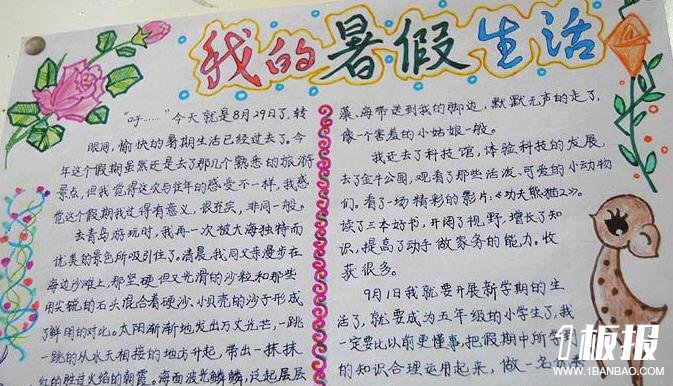 我的暑假生活
"吁……"今天就是8月29日了,转
眼间,愉快的暑期生活已经过去了。今
年这个假期虽然还是去了那几个熟悉的旅游
景点,但我觉得这次与往年的感受不一样,我感
觉这个假期我过得有意义,很充实,非同一般。
去青岛游玩时,我再一次被大海独特而
优美的景色所吸引住了。清晨,我同父亲漫步在
海边沙滩上,那坚硬但又光滑的沙粒和那些
用尖锐的石头混合着硬沙、小贝壳的沙子形成
了鲜明的对比。太阳渐渐地发出万丈光芒,一跳
一跳的从水天相接的地方升起,带出一抹抹
的胜过火焰的朝霞。海面波光鳞鳞,泛起层层
藻、海带送到我的脚边,默默无声的走了,
像一个害羞的小姑娘一般。
我还去了科技馆,体验科技的发展
去了金牛公园,观看了那些活泼、可爱的小动物
们。看了一场精彩的影片:《功夫熊猫2》。
读了三本好书,开阔了视野,增长了知
识,提高了动手做家务的能力。收
获很多。
9月1日我就要开展新学期的生
活了,就要成为五年级的小学生了,我
一定要比以前更懂事,把假期中所学
的知识合理运用起来,做一名
1板报
WWW.1BANBAO.COM